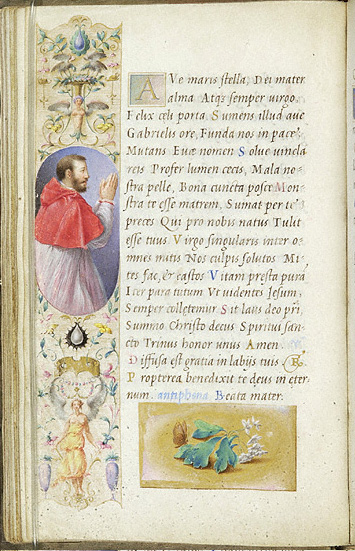 AVe maris ſtella, Dei mater
alma Atq; ſemper virgo.
Felix celi porta. Sumens illud aue
Gabrielis ore, Funda nos in pace,
Mutans Euæ nomen Solue vincla
reis Profer lumen cecis, Mala no-
ſtra pelle, Bona cuncta poſce Mon
ſtra te eſſe matrem, Sumat per te
preces Qui pro nobis natus Tulit
eſſe tuus Virgo ſingularis inter o-
mnes mitis Nos culpis ſolutos Mi
tes fac, et caſtos Vitam preſta pura
Iter para tutum Vt videntes Jeſum,
Semper colletemur Sit laus deo pri,
Summo Chriſto decus Spiritui ſan
cto Trinus honor unus Amen
Diffuſa eſt gratia in labijs tuis R
Propterea benedixit te deus in eter-
num. antiphona Beata mater.